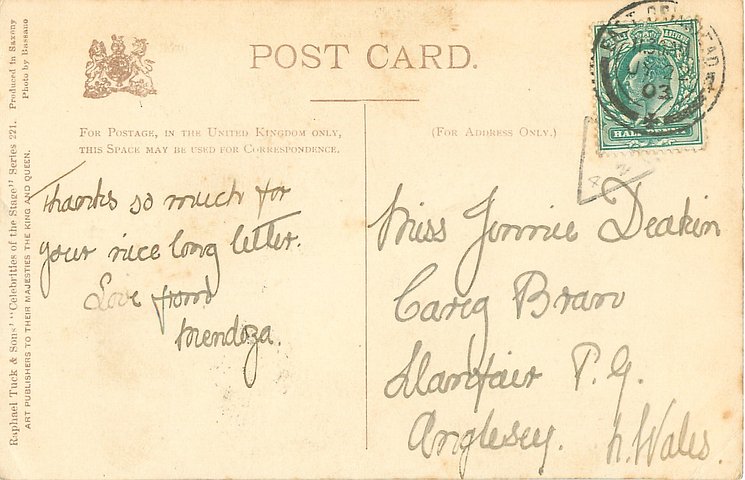 POST CARD.
FOR POSTAGE, IN THE UNITED KINGDOM ONLY,
THIS SPACE MAY BE USED FOR CORRESPONDENCE.
(FOR ADDRESS ONLY.)
Thanks so much for
your nice long letter.
Love from
Mendoza.
Miss Jinnie Deakin
Careg Bran
Llanfair P.G.
Anglesey. N. Wales.
HALF PENNY
03
Raphael Tuck & Sons' "Celebrities of the Stage" Series 221. Produced in Saxony
ART PUBLISHERS TO THEIR MAJESTIES THE KING AND QUEEN. Photo by Bassano